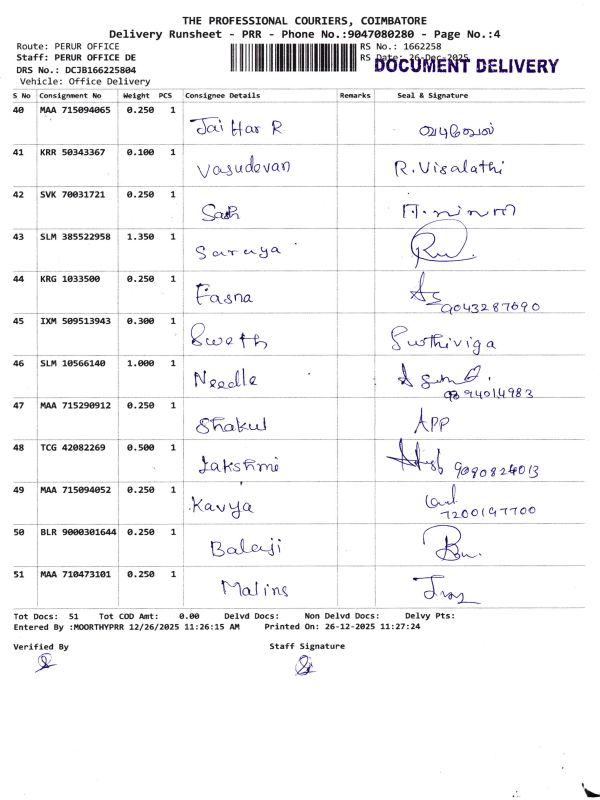 THE PROFESSIONAL COURIERS, COIMBATORE
Delivery Runsheet - PRR - Phone No.:9047080280 - Page No.:4
Route: PERUR OFFICE RS No.: 1662258
Staff: PERUR OFFICE DE RS Date: 26-Dec-2025
DOCUMENT DELIVERY
DRS No.: DCJB166225804
Vehicle: Office Delivery
S No Consignment No Weight PCS Consignee Details Remarks Seal & Signature
40 MAA 715094065 0.250 1 Jai Har R
41 KRR 50343367 0.100 1 Vasudevan R. Visalathi
42 SVK 70031721 0.250 1
43 SLM 385522958 1.350 1 Saraya
44 KRG 1033500 0.250 1 Fasna 9043287690
45 IXM 509513943 0.300 1 Sweth Suthiviga
46 SLM 10566140 1.000 1 Needle
47 MAA 715290912 0.250 1 Shakul APP
48 TCG 42082269 0.500 1 Lakshmi 9090824013
49 MAA 715094052 0.250 1 Kavya 7200197700
50 BLR 9000301644 0.250 1 Balaji
51 MAA 710473101 0.250 1 Malins
Tot Docs: 51 Tot COD Amt: 0.00 Delvd Docs: Non Delvd Docs: Delvy Pts:
Entered By :MOORTHYPRR 12/26/2025 11:26:15 AM Printed On: 26-12-2025 11:27:24
Verified By Staff Signature